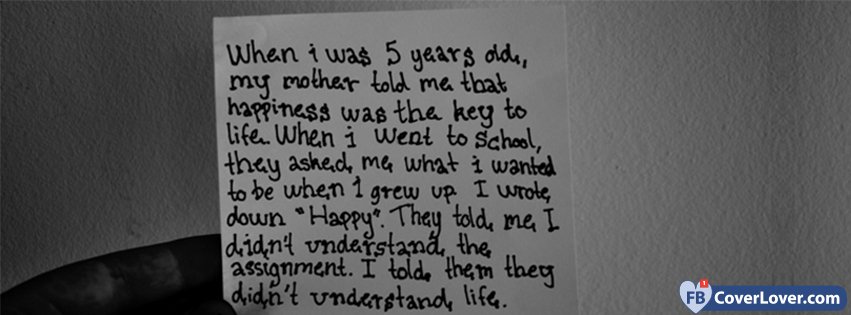 When i was 5 years old,
my mother told me that
happiness was the key to
life. When i went to School,
they asked me what i wanted
to be when I grew up I wrote
down "Happy". They told me I
didn't understand the
assignment. I told them they
didn't understand life.
FB CoverLover.com